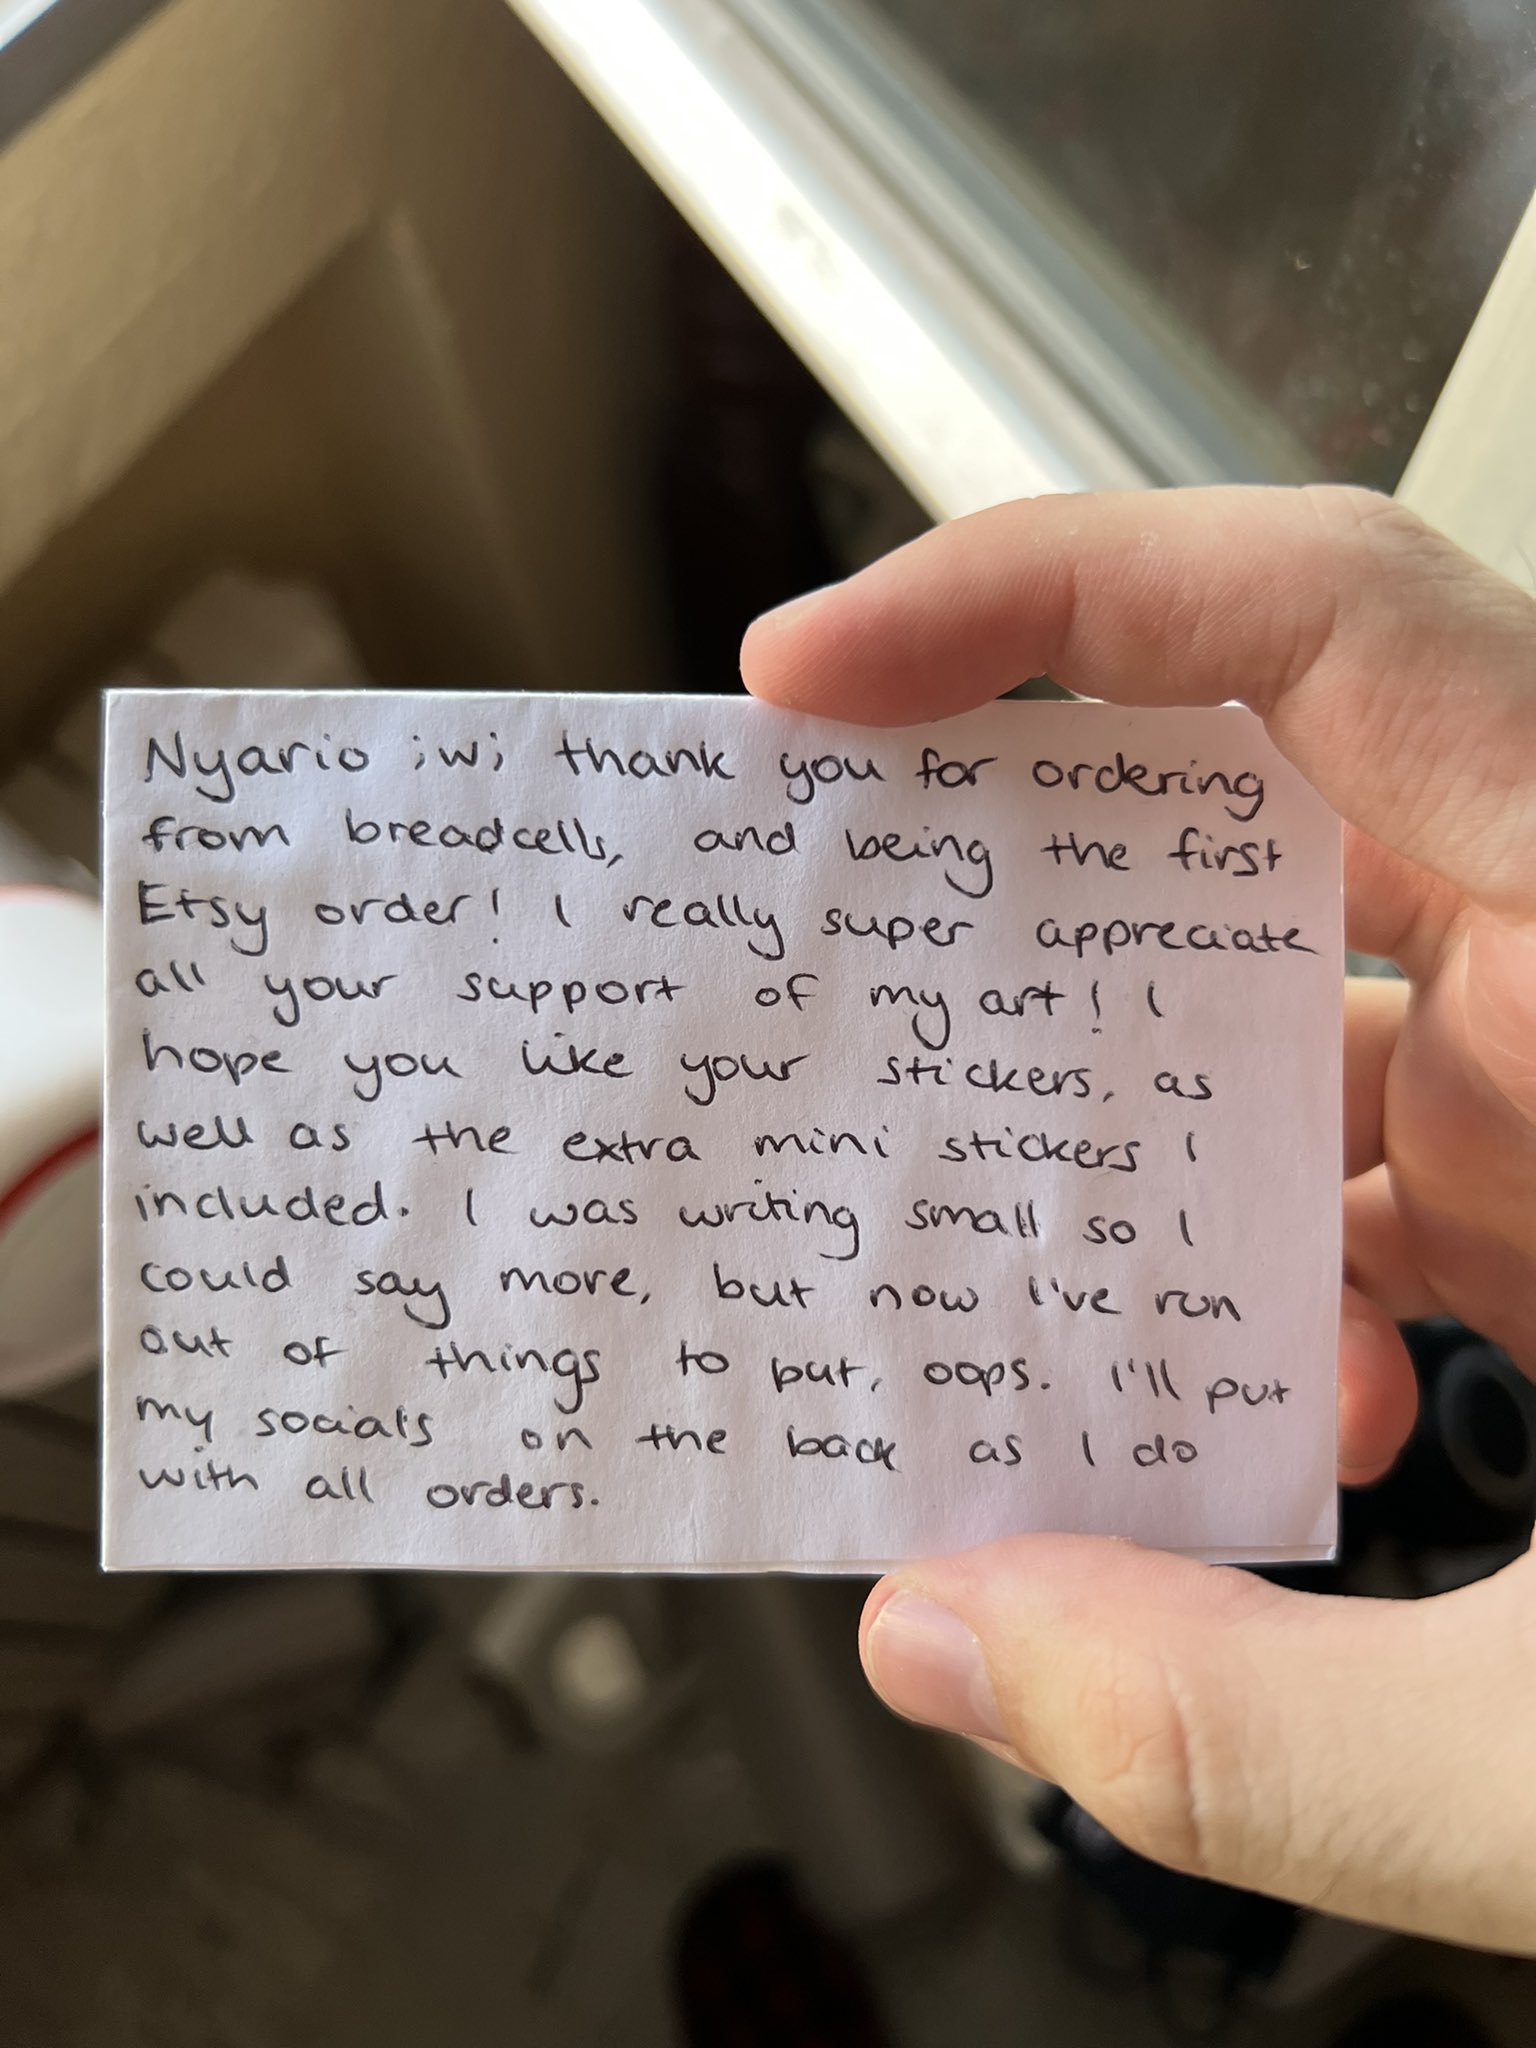 Nyario ;w; thank you for ordering
from breadcells, and being the first
Etsy order! I really super appreciate
all your support of my art! I
hope you like your stickers, as
well as the extra mini stickers I
included. I was writing small so I
could say more, but now I've run
out of things to but, oops. I'll put
my socials on the back as I do
with all orders.